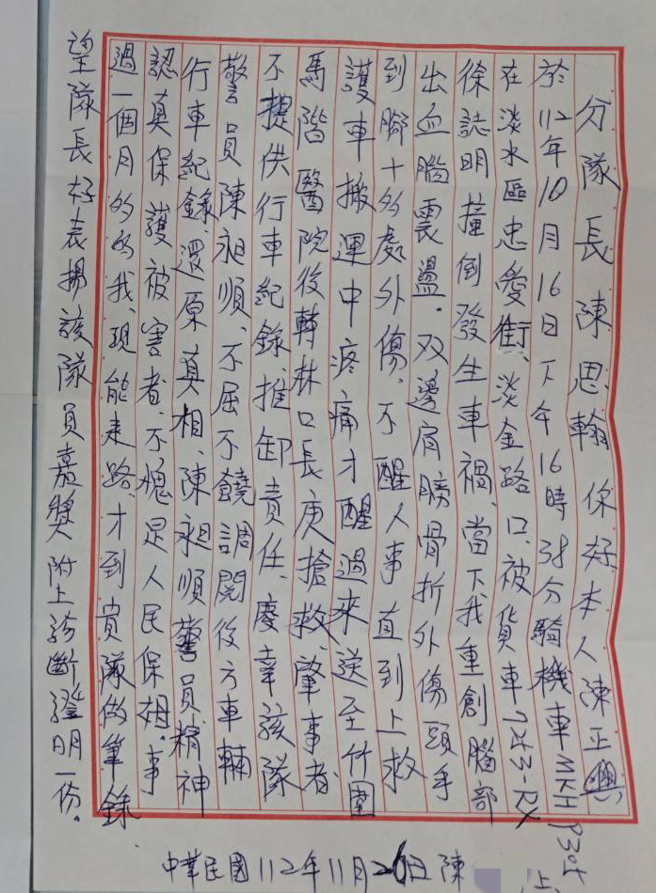 分隊長陳思翰你好本人陳正興
於112年10月16日下午16時38分騎機車MKH
在淡水區忠愛街、淡金路口、被貨車743-RX
徐誌明撞倒發生車禍、當下我重創腦部
出血腦震盪、双邊肩膀骨折外傷頭手
到腳十多處外傷、不醒人事直到上救
護車搬運中疼痛才醒過來送至竹圍
馬階醫院後轉林口長庚搶救、肇事者、
不提供行車紀錄、推卸責任、慶幸該隊
警員陳昶順、不屈不饒調閱後方車輛
行車紀錄、還原真相、陳昶順警員精神
認真保護被害者、不愧是人民保姆、事
過一個月的的我、現能走路、才到貴隊做筆錄、
望隊長好表揚該隊員嘉獎附上診斷證明一份、
中華民國112年11月26日陳 上